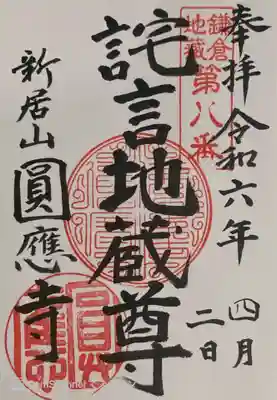 奉拝 令和六年
四月
二日
鎌倉
地蔵
第八番
詫言地蔵尊
新居山 圓應寺